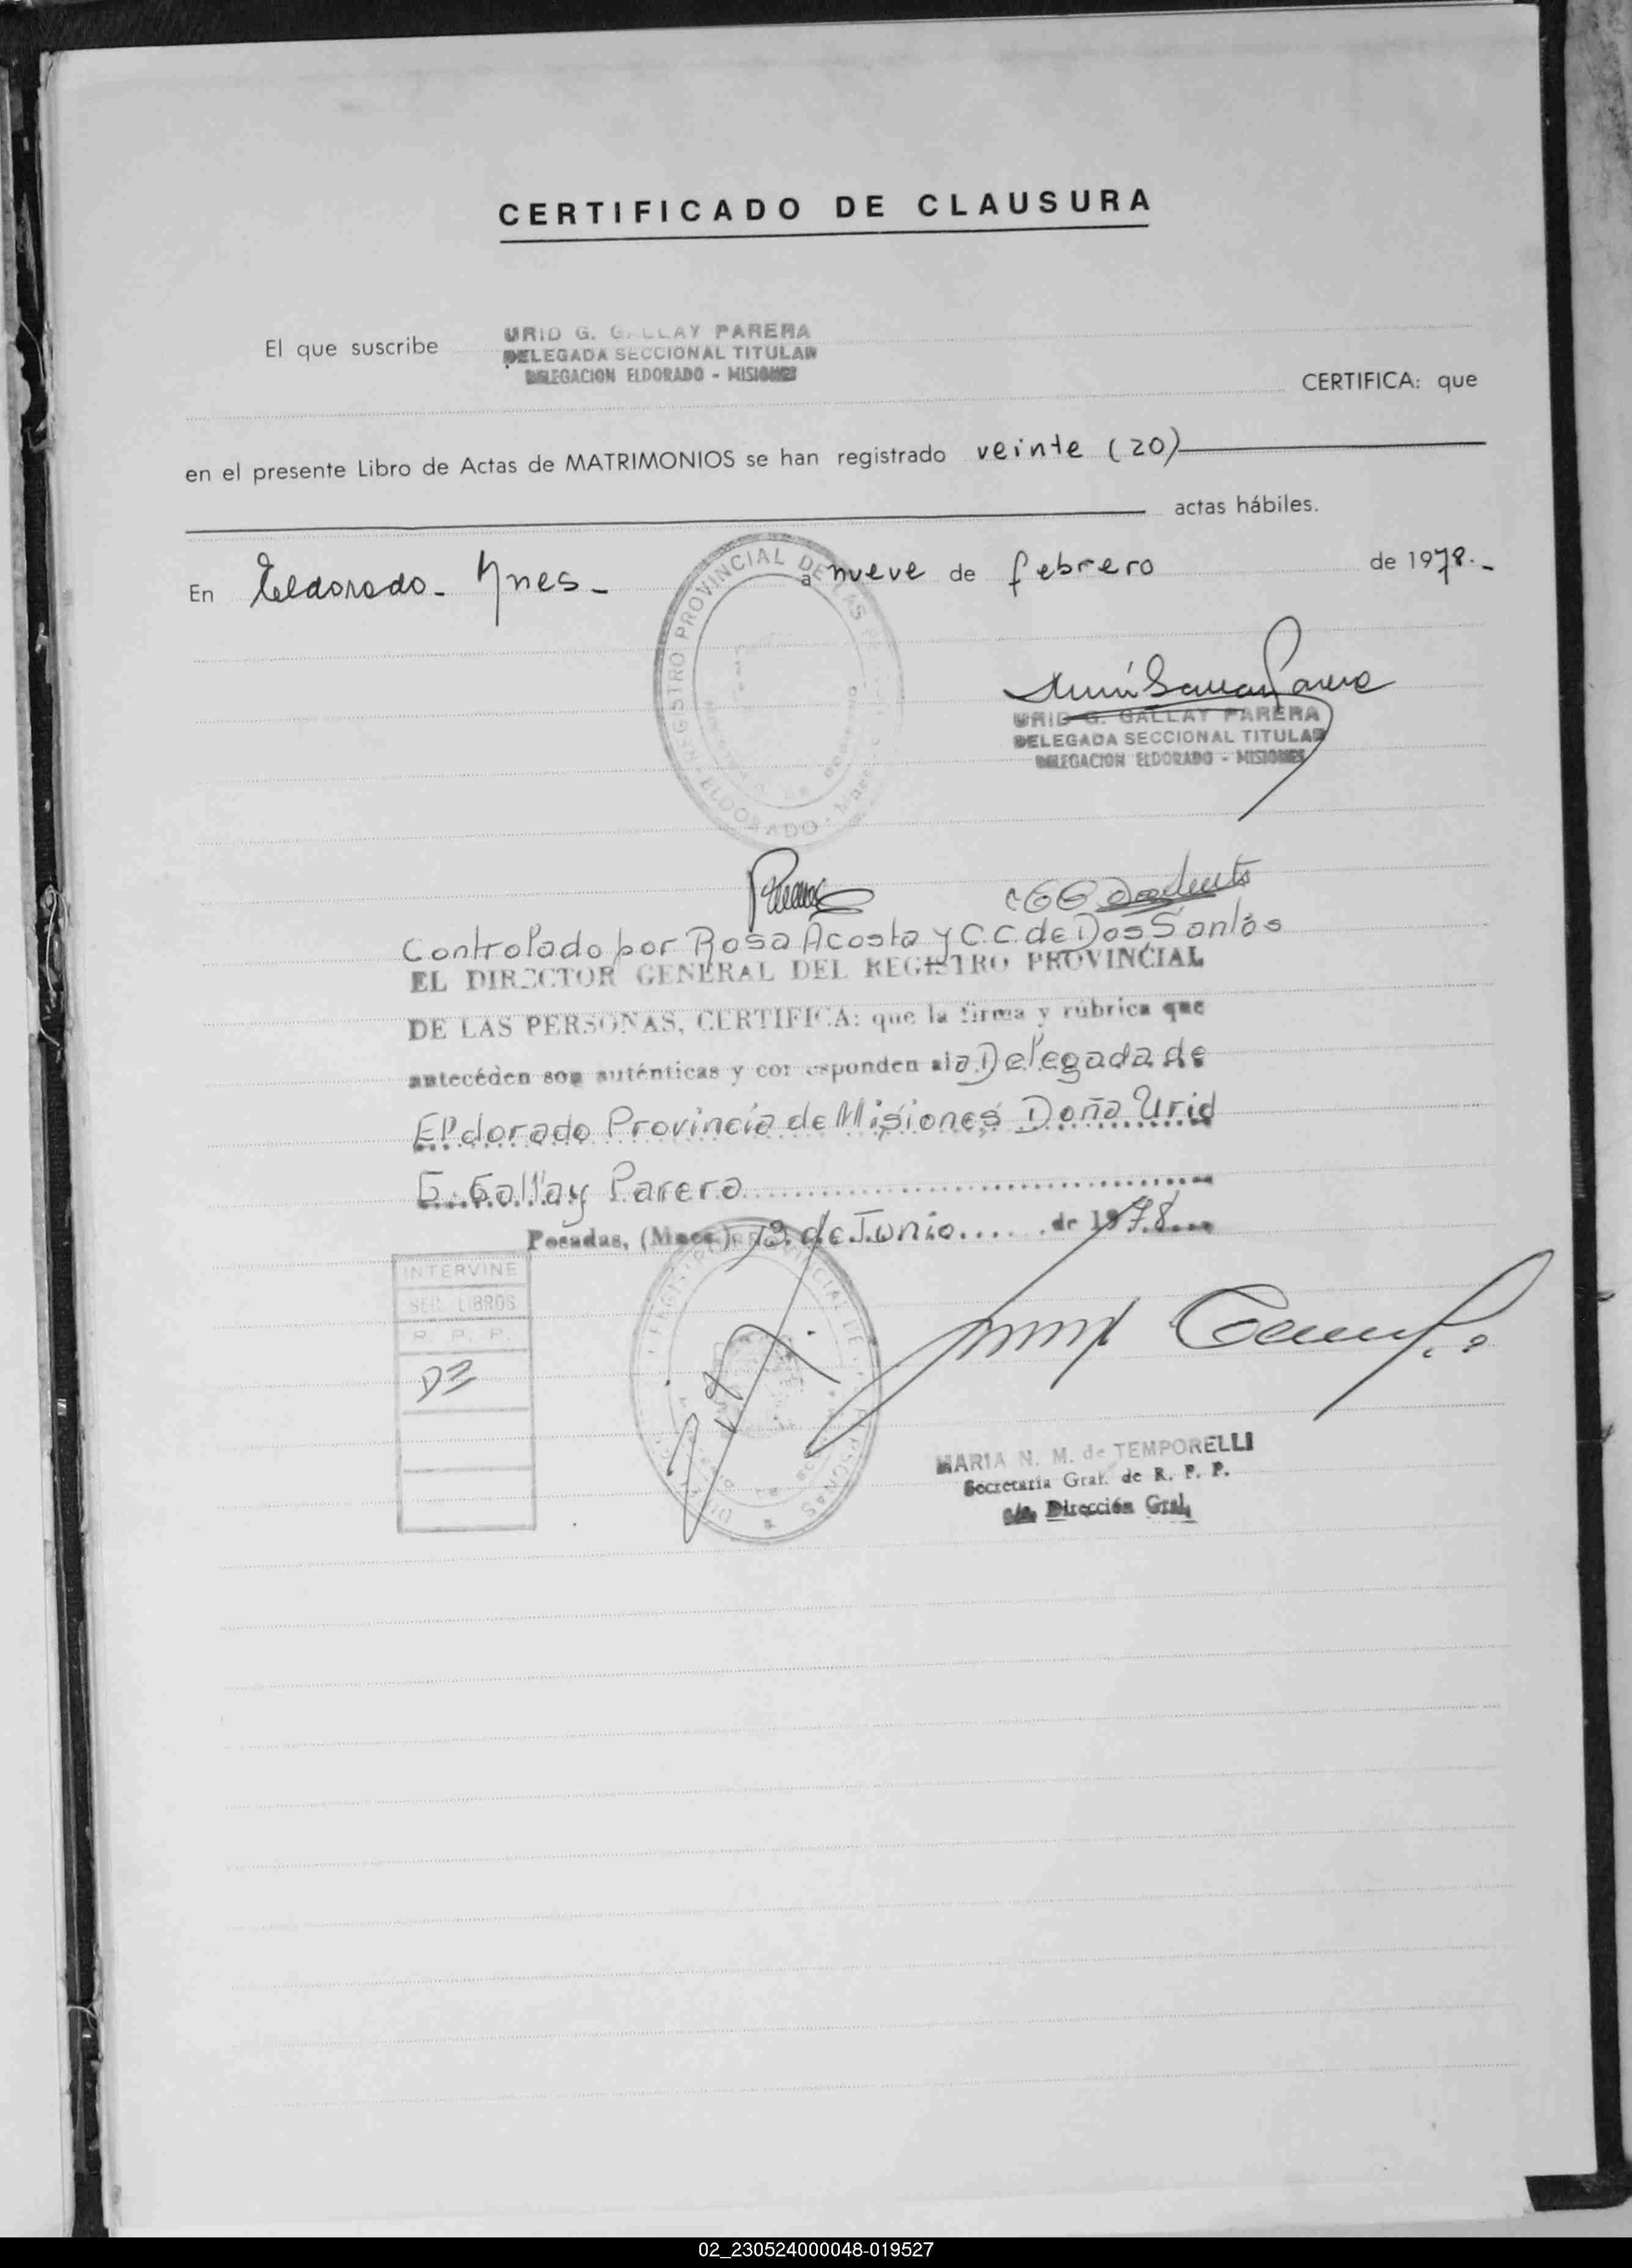 CERTIFICADO DE CLAUSURA
El que suscribe URID G. GALLAY PARERA
DELEGADA SECCIONAL TITULAR
DELEGACION ELDORADO - MISIONES
CERTIFICA: que
en el presente Libro de Actas de MATRIMONIOS se han registrado veinte (20)
actas hábiles.
En Eldorado - Mnes - a nueve de febrero de 1978.-
REGISTRO PROVINCIAL DE LAS
ELDORADO - Mnes.
URID G. GALLAY PARERA
DELEGADA SECCIONAL TITULAR
DELEGACION ELDORADO - MISIONES
Controlado por Rosa Acosta y C.C. de Dos Santos
EL DIRECTOR GENERAL DEL REGISTRO PROVINCIAL
DE LAS PERSONAS, CERTIFICA: que la firma y rúbrica que
anteceden son auténticas y corresponden a la Delegada de
Eldorado Provincia de Misiones Doña Urid
G. Gallay Parera
Posadas, (Mnes) de Junio de 1978
INTERVINE
SEC. LIBROS
R. P. P.
MARIA N. M. de TEMPORELLI
Secretaria Gral. de R. P. P.
Dirección Gral.
02_230524000048-019527